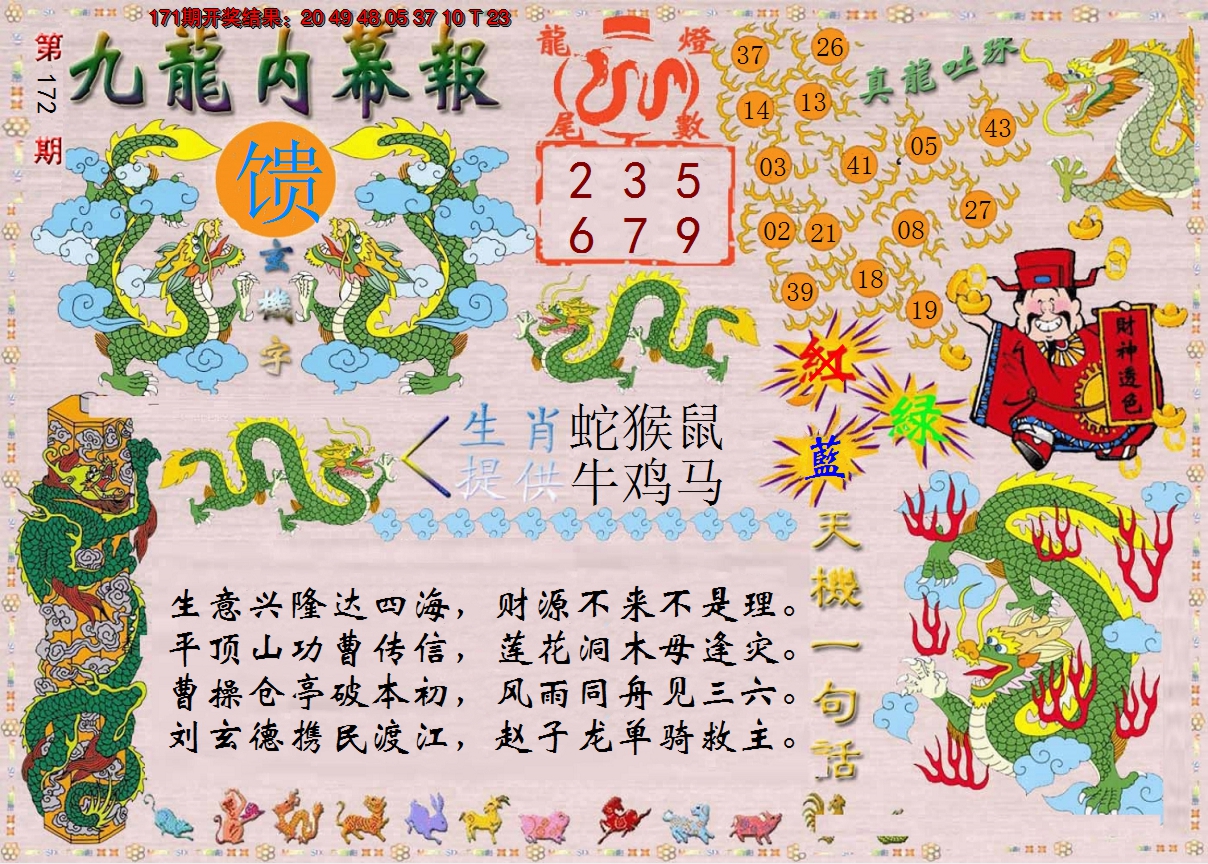 171期开奖结果：20 49 48 05 37 10 T 23
第172期
九龍内幕報
馈
玄機字
龍燈尾數
2 3 5
6 7 9
真龍吐珠
37 26
14 13
03 41 05 43
02 21 08 27
39 18 19
財神透色
紅
綠
藍
生肖 蛇猴鼠
提供 牛鸡马
天機一句话
生意兴隆达四海，财源不来不是理。
平顶山功曹传信，莲花洞木母逢灾。
曹操仓亭破本初，风雨同舟见三六。
刘玄德携民渡江，赵子龙单骑救主。